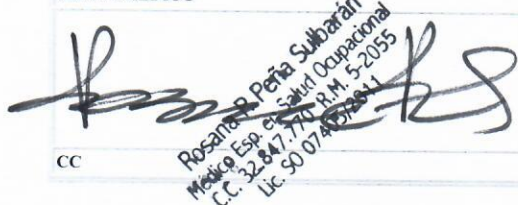 Rosana P. Peña Sulbarán
Médico Esp. en Salud Ocupacional
C.C. 32.847.770 R.M. 5-2055
Lic. SO
CC